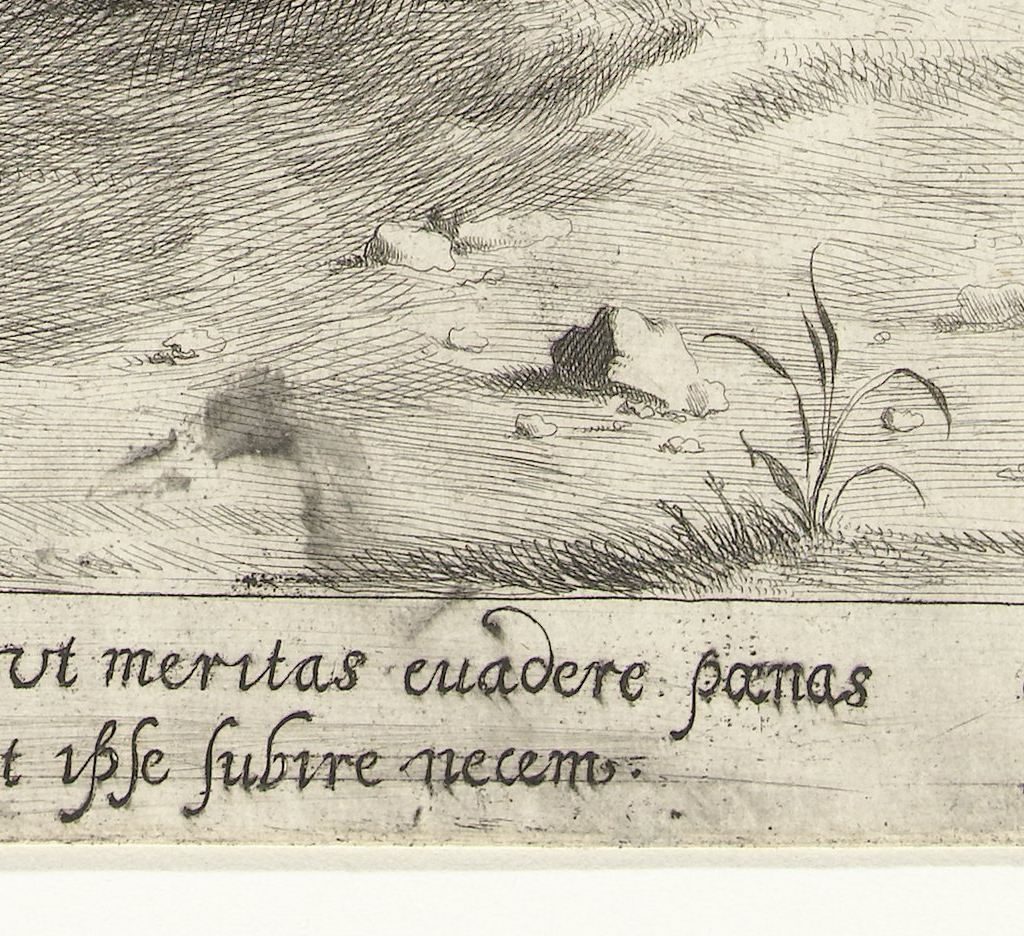 ut meritas euadere pœnas
t ipſſe ſubire necem.